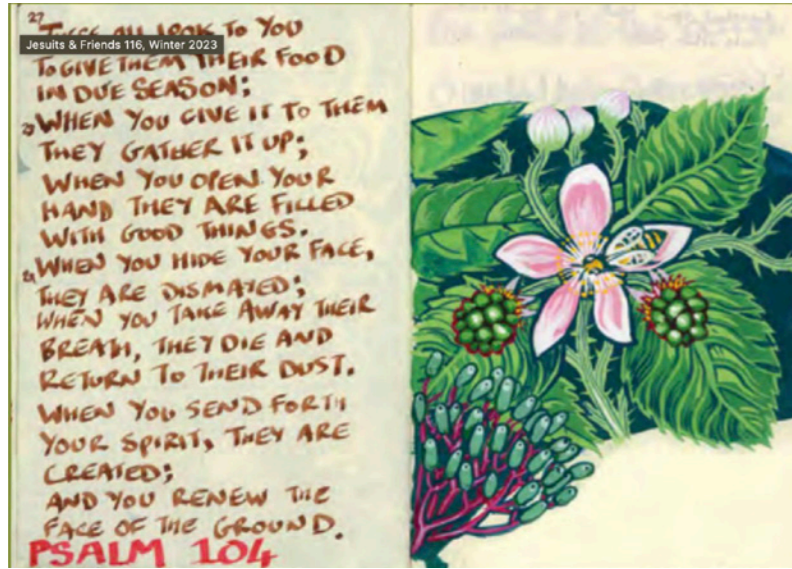 27
These all look to You
Jesuits & Friends 116, Winter 2023
To give them their food
in due season;
28 When You give it to them
they gather it up;
When You open Your
hand they are filled
with good things.
29 When You hide Your face,
they are dismayed;
When You take away their
breath, they die and
return to their dust.
When You send forth
Your Spirit, they are
created;
And You renew the
face of the ground.
PSALM 104